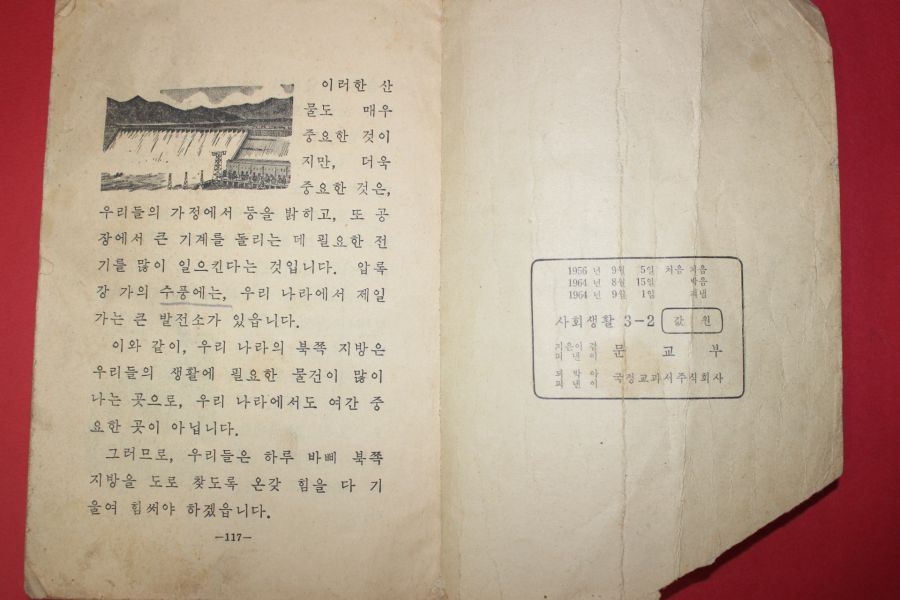 이러한 산
물도 매우
중요한 것이
지만, 더욱
중요한 것은,
우리들의 가정에서 등을 밝히고, 또 공
장에서 큰 기계를 돌리는 데 필요한 전
기를 많이 일으킨다는 것입니다. 압록
강 가의 수풍에는, 우리 나라에서 제일
가는 큰 발전소가 있읍니다.
이와 같이, 우리 나라의 북쪽 지방은
우리들의 생활에 필요한 물건이 많이
나는 곳으로, 우리 나라에서도 여간 중
요한 곳이 아닙니다.
그러므로, 우리들은 하루 바삐 북쪽
지방을 도로 찾도록 온갖 힘을 다 기
울여 힘써야 하겠읍니다.
—117—
1956 년 9월 5일 처음 지음
1964 년 8월 15일 박음
1964 년 9월 1일 펴냄
사회생활 3-2 값 원
지은이 겸
펴낸이 문교부
박아
펴낸이 국정교과서주식회사